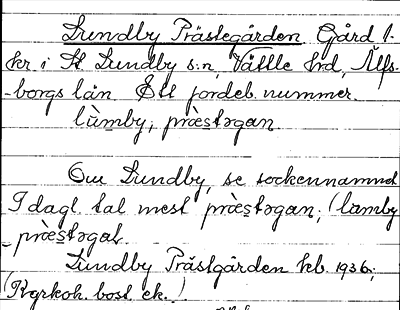 Lundby Prästegården. Gård 1.
kr. i St Lundby s:n, Vättle hrd, Älfs-
-borgs län. Ett jordeb. nummer.
lùmby, præ̀stəgan
Om Lundby, se sockennamnet
I dagl. tal mest præ̀stəgan; (lùmby
-præ̀stəgaḷ.
Lundby Prästgården kb. 1936;
(Kyrkoh. bost. ek.)